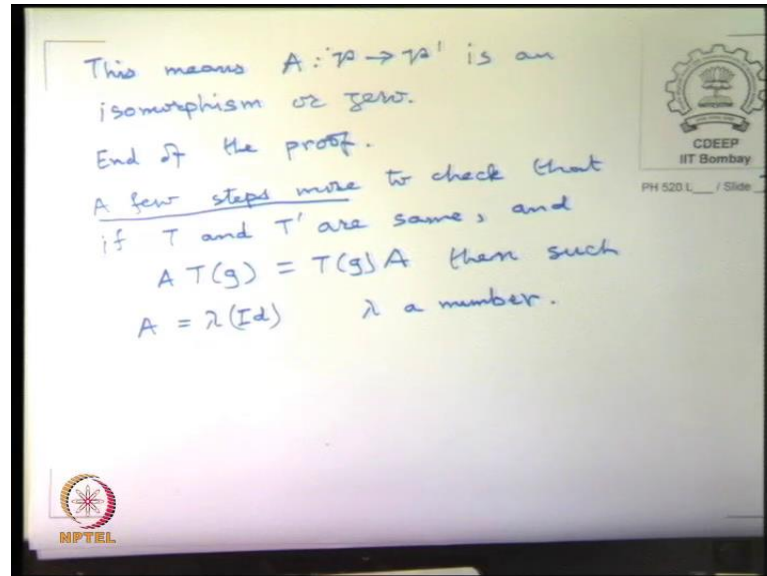 This means A : V → V' is an
isomorphism or zero.
End of the proof.
A few steps more to check that
if T and T' are same, and
A T(g) = T(g) A then such
A = λ(Id) λ a number.
CDEEP
IIT Bombay
PH 520 L___ / Slide
NPTEL